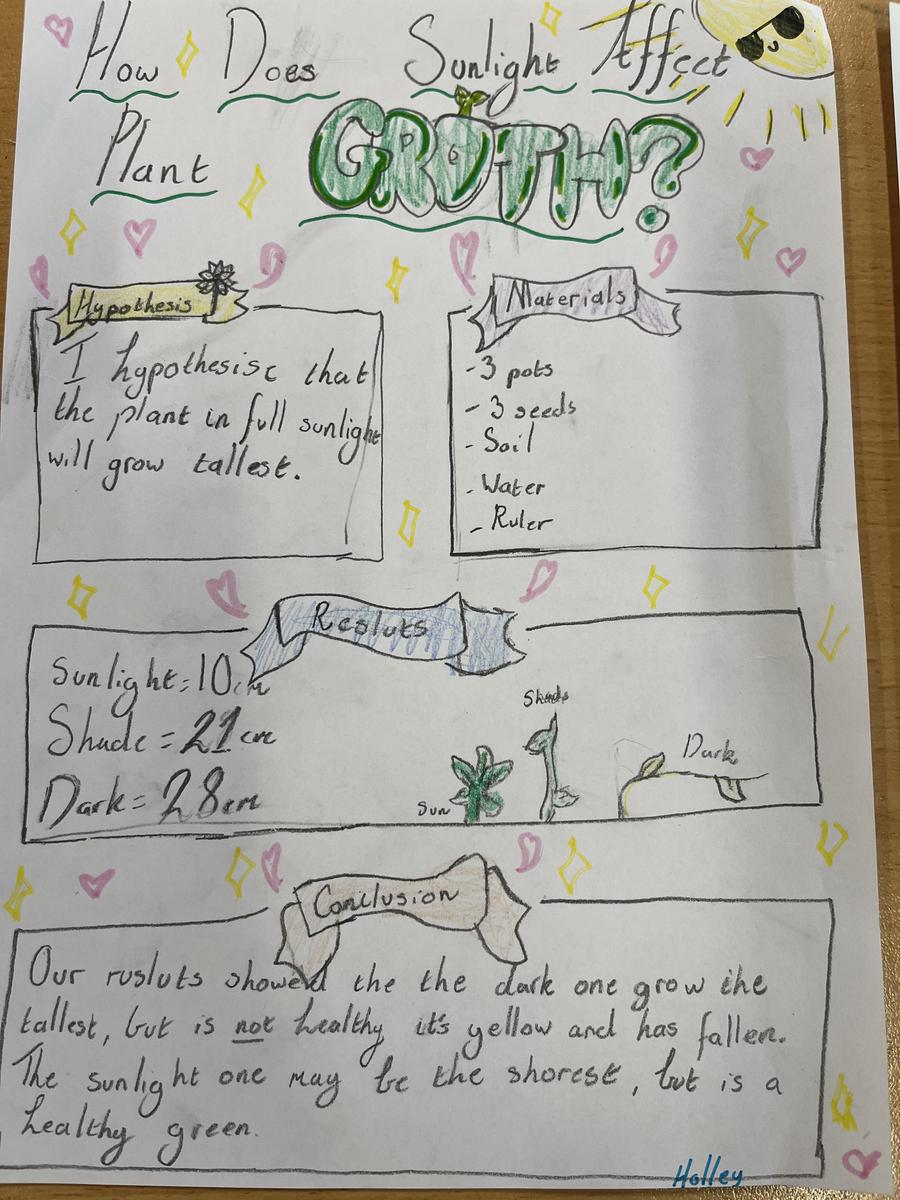 How Does Sunlight Affect
Plant GROTH?
Hypothesis
I hypothesise that
the plant in full sunlight
will grow tallest.
Materials
- 3 pots
- 3 seeds
- Soil
- Water
- Ruler
Resluts
Sunlight = 10cm
Shade = 21cm
Dark = 28cm
Sun
Shade
Dark
Conclusion
Our rusluts showed the the dark one grow the
tallest, but is not healthy it's yellow and has fallen.
The sunlight one may be the shorest, but is a
healthy green.
Holley